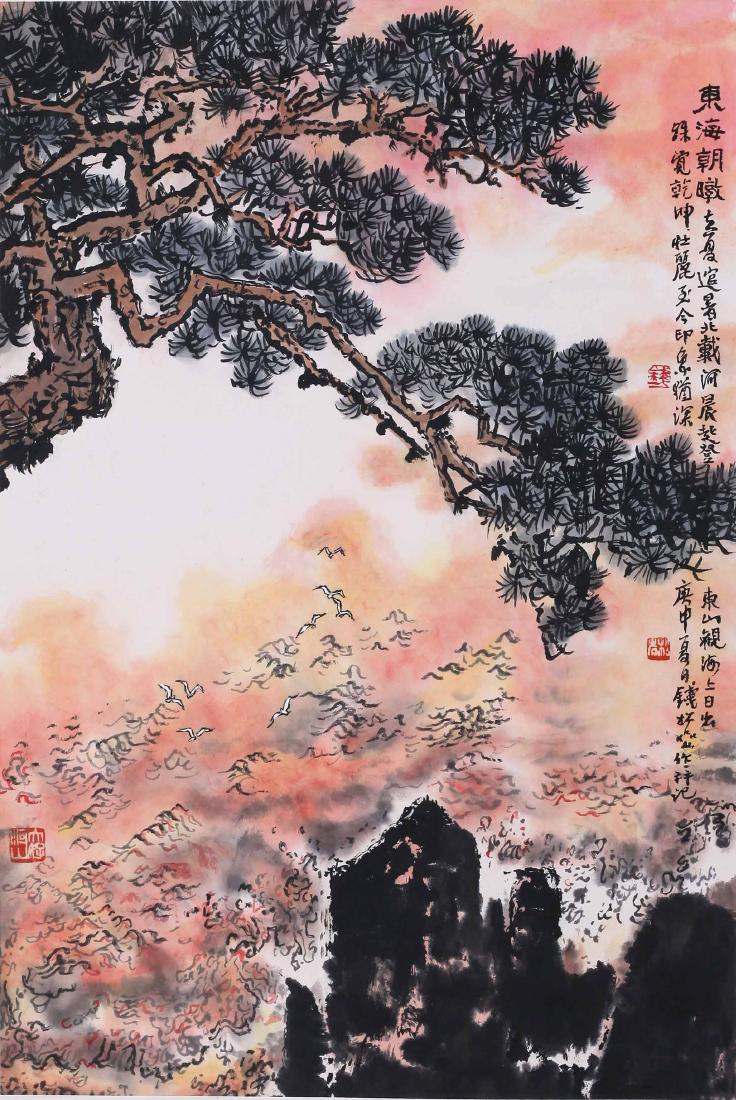 東海朝暾 去夏避暑北戴河晨起登東山觀海上日出
殊覺乾坤壯麗至今印象猶深 庚申夏月錢松喦作并記